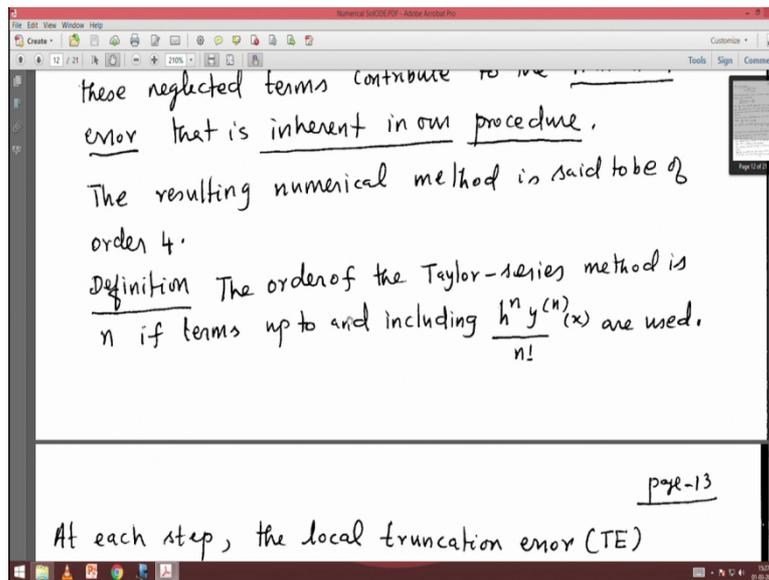 Numerical SolODE.PDF - Adobe Acrobat Pro
File Edit View Window Help
Create Customize
12 / 21 210% Tools Sign Comme
these neglected terms contribute to the
error that is inherent in our procedure.
The resulting numerical method is said to be of
order 4.
Definition The order of the Taylor-series method is
n if terms up to and including hⁿ y⁽ⁿ⁾(x) / n! are used.
Page 12 of 21
page-13
At each step, the local truncation error (TE)